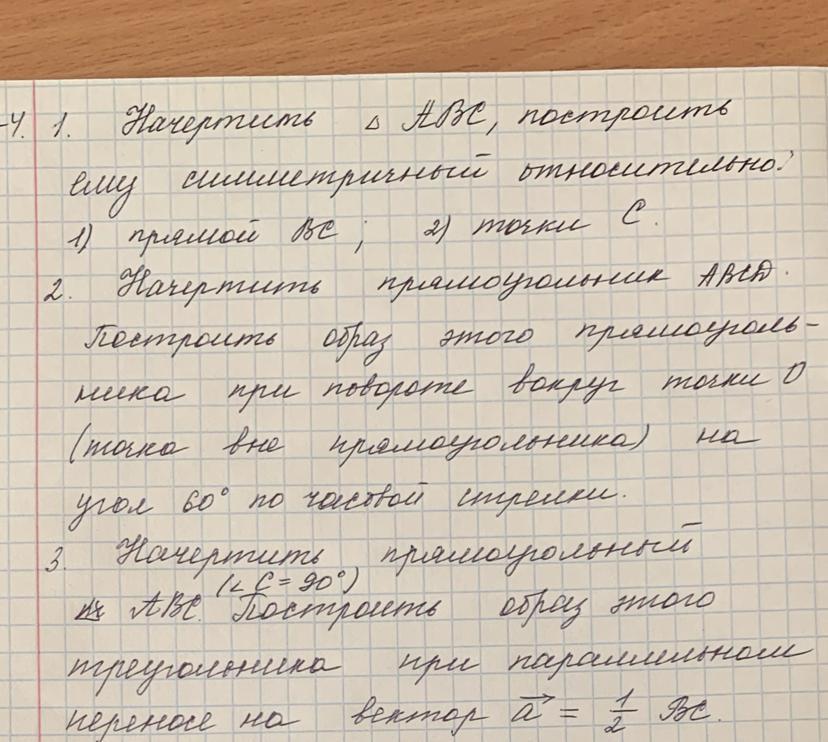 -4. 1. Начертить △ ABC, построить
ему симметричный относительно:
1) прямой BC ; 2) точки C.
2. Начертить прямоугольник ABCD.
Построить образ этого прямоуголь-
ника при повороте вокруг точки O
(точка вне прямоугольника) на
угол 60° по часовой стрелки.
3. Начертить прямоугольный
(∠ C = 90°)
ABC. Построить образ этого
треугольника при параллельном
переносе на вектор a⃗ = 1/2 BC.